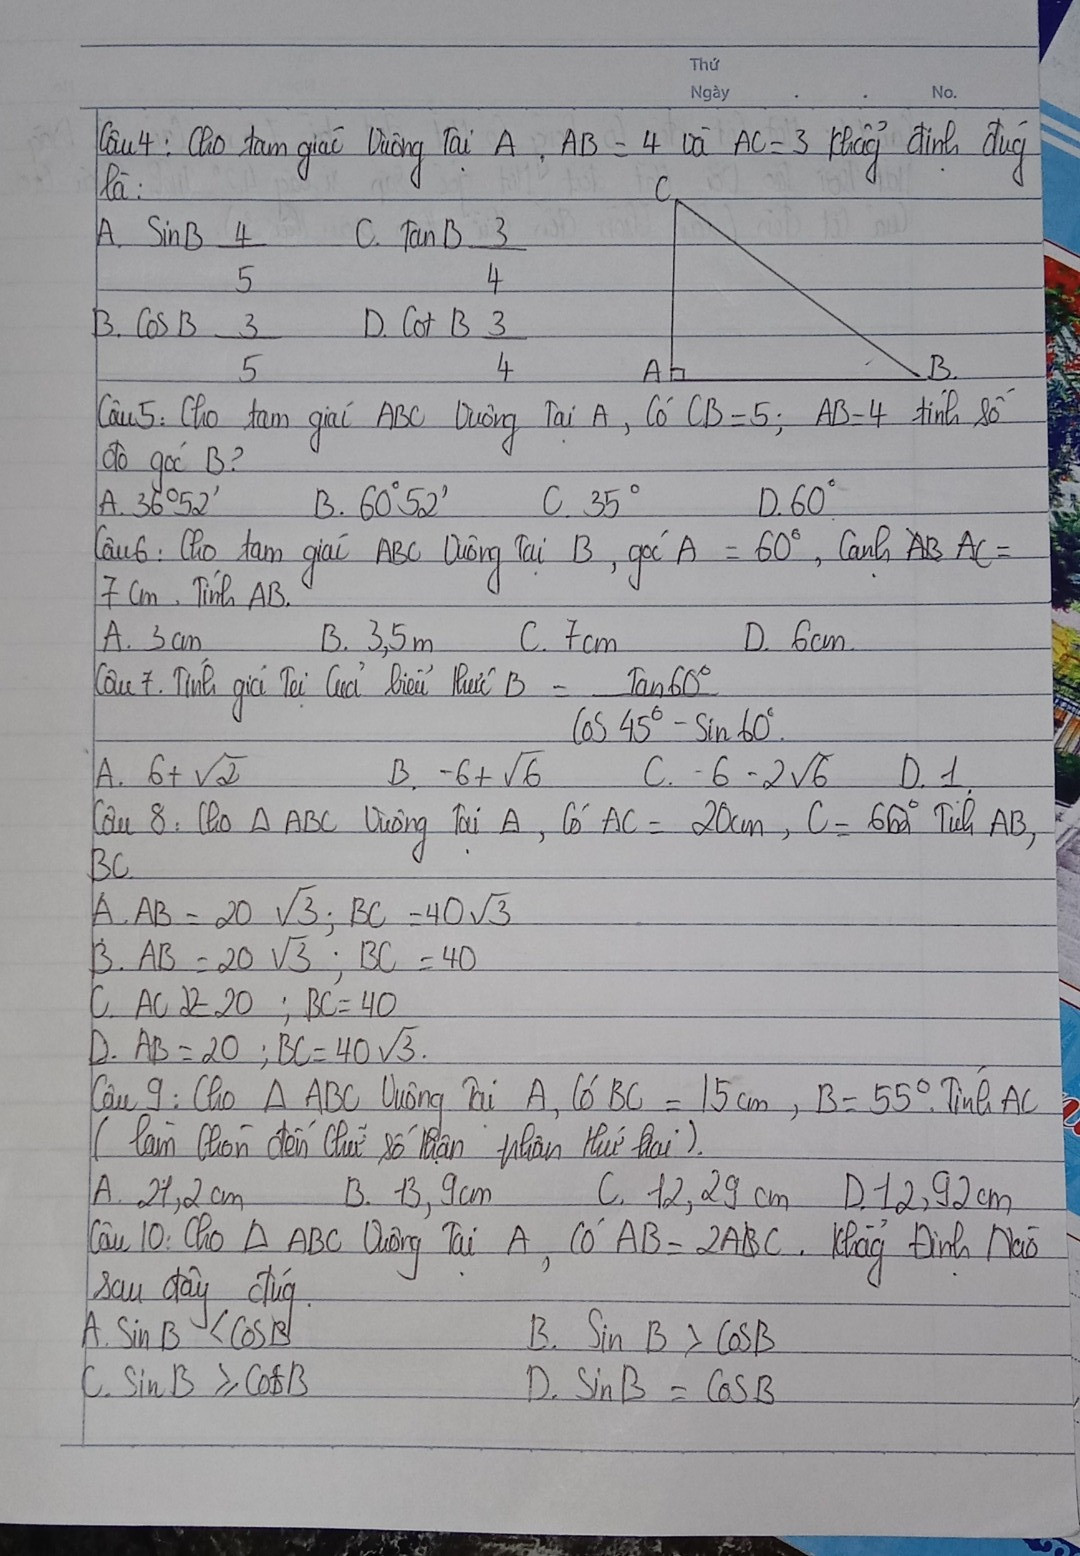 Thứ
Ngày . . No.
Câu 4: Cho tam giác Vuông Tại A, AB = 4 và AC = 3 Khẳg định đúg
là:
A. SinB 4/5 C. TanB 3/4
B. CosB 3/5 D. Cot B 3/4
C
A B.
Câu 5: Cho tam giác ABC Vuông Tại A, Có CB = 5; AB = 4 tính số
đo góc B?
A. 36°52' B. 60°52' C. 35° D. 60°
Câu 6: Cho tam giác ABC Vuông Tại B, góc A = 60°, Cạnh AC =
7 cm. Tính AB.
A. 3 cm B. 3,5m C. 7cm D. 6cm.
Câu 7. Tính giá Tại Của biểu thức B = Tan60° / Cos 45° - Sin 60°.
A. 6 + √2 B. -6 + √6 C. -6 - 2√6 D. 1.
Câu 8: Cho Δ ABC Vuông Tại A, Có AC = 20cm, C = 60° Tính AB,
BC
A. AB = 20 √3; BC = 40√3
B. AB = 20 √3; BC = 40
C. AC = 20; BC = 40
D. AB = 20; BC = 40√3.
Câu 9: Cho Δ ABC Vuông Tại A, Có BC = 15cm, B = 55°. Tính AC
(làm tròn đến chữ số thận phân thứ hai).
A. 21,2cm B. 13,9cm C. 12,29 cm D. 12,92cm
Câu 10: Cho Δ ABC Vuông Tại A, Có AB = 2ABC. Khẳg Định Nào
sau đây đúg.
A. Sin B < CosB B. Sin B > CosB
C. Sin B ≥ CosB D. SinB = CosB